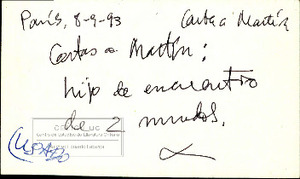 París, 8-9-93 Carta a Martín
Cartas a Martín:
hijo de encuentro
de 2 mundos.
(USADO)